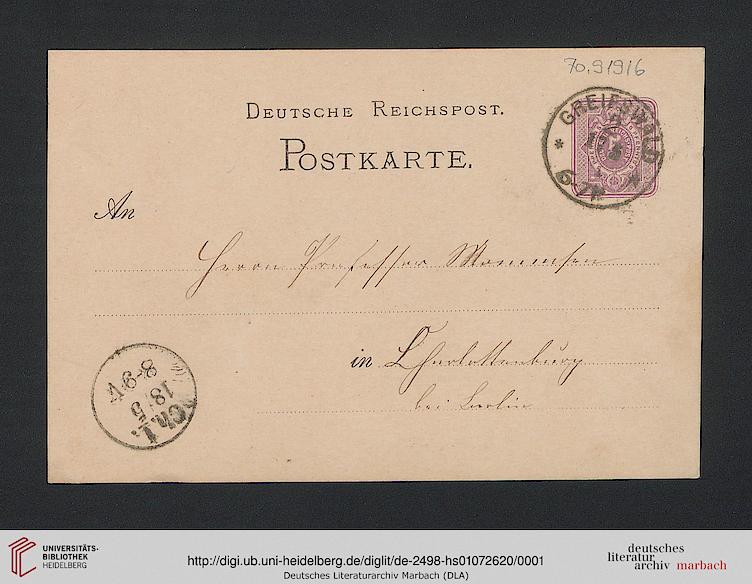 70.91916
DEUTSCHE REICHSPOST.
GREIFSWALD
POSTKARTE.
An
Herrn Professor Mommsen
in Charlottenburg
bei Berlin
8-9V
18/5
UNIVERSITÄTS-
BIBLIOTHEK
HEIDELBERG
http://digi.ub.uni-heidelberg.de/diglit/de-2498-hs01072620/0001
Deutsches Literaturarchiv Marbach (DLA)
deutsches
literatur
archiv marbach